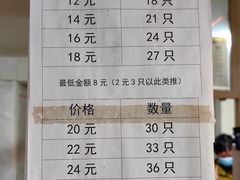 12 元 18 只
14 元 21 只
16 元 24 只
18 元 27 只
最低金额 8 元（2 元 3 只以此类推）
价格 数量
20 元 30 只
22 元 33 只
24 元 36 只